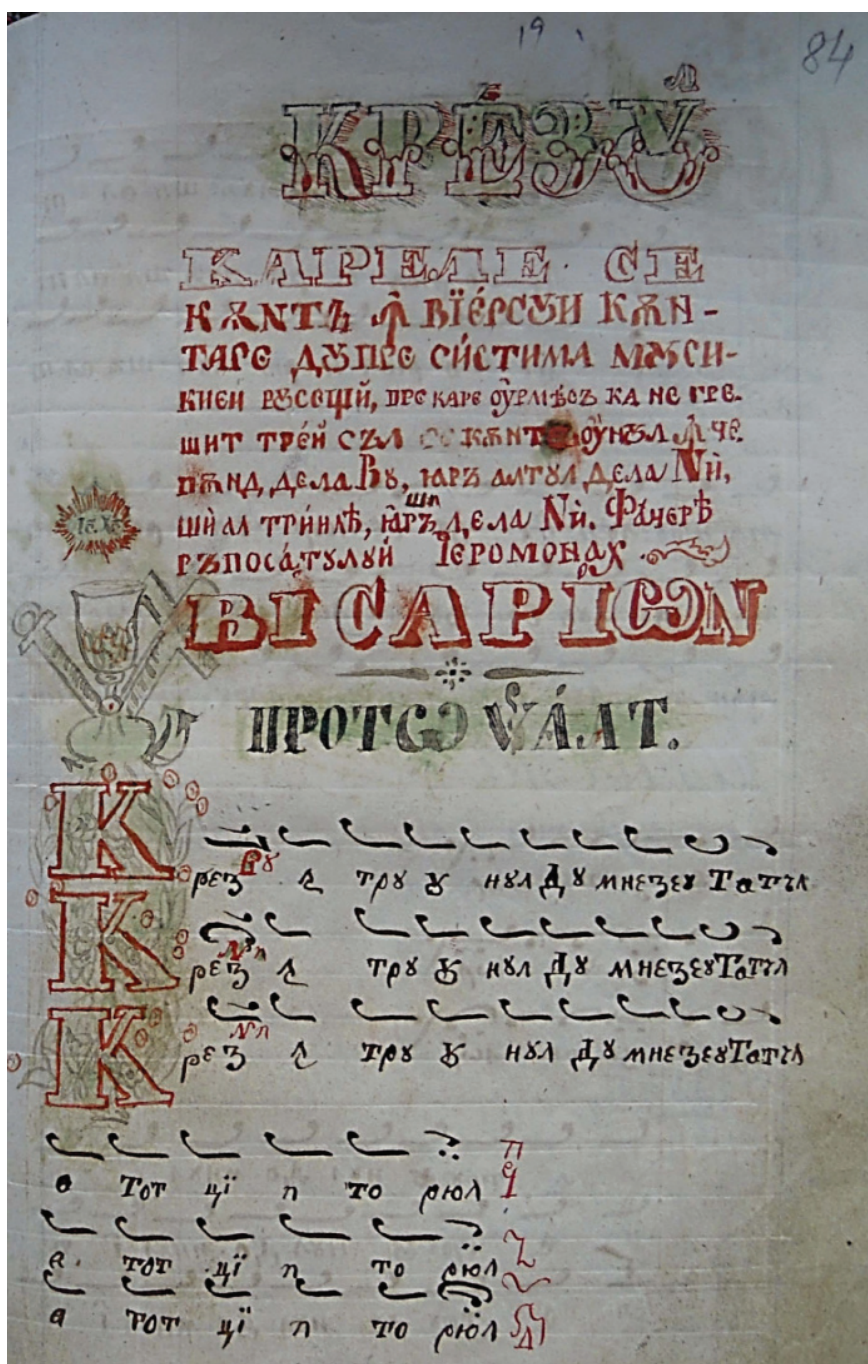 19
84
КРЕ́ЗУЛ
КАРЕЛЕ СЕ
КѪНТЪ Ꙟ ВЇЕ́РСꙊИ КѪН-
ТАРЕ ДꙊПРЕ СИ́СТИМА МꙊСИ-
КИЕИ РꙊСЕЩЙ, ПРЕ КАРЕ ОУРМѢЗЪ КА НЕ ГРЕ-
ШИТ ТРЕ́Й СЪЛ КѪНТЪ ОУНꙊЛ Ꙟ ЧЕ
ПѪНД ДЕЛА ВУ, ꙖРЪ АЛТУЛ ДЕЛА NИ,
ШИ АЛ ТРИ́ЛѢ, ꙖРЪШЙ ДЕЛА NИ. ФАЧЕРѢ
РЪПОСА́ТꙊЛУЙ ЇЕРОМОНАХ
ІС. ХС
ВІСАРІѠN
ПРОТѠѰА́ЛТ.
Крез ꙟ тру ꙋ нꙋл Дꙋ мнезеꙋ Татъл
Ву
Крез ꙟ трꙋ ꙋ нꙋл Дꙋ мнезеꙋ Татъл
Nи
Крез ꙟ трꙋ ꙋ нꙋл Дꙋ мнезеꙋ Татъл
Nи
а тот цї п то рюл
а тот цї п то рюл
а тот цї п то рюл